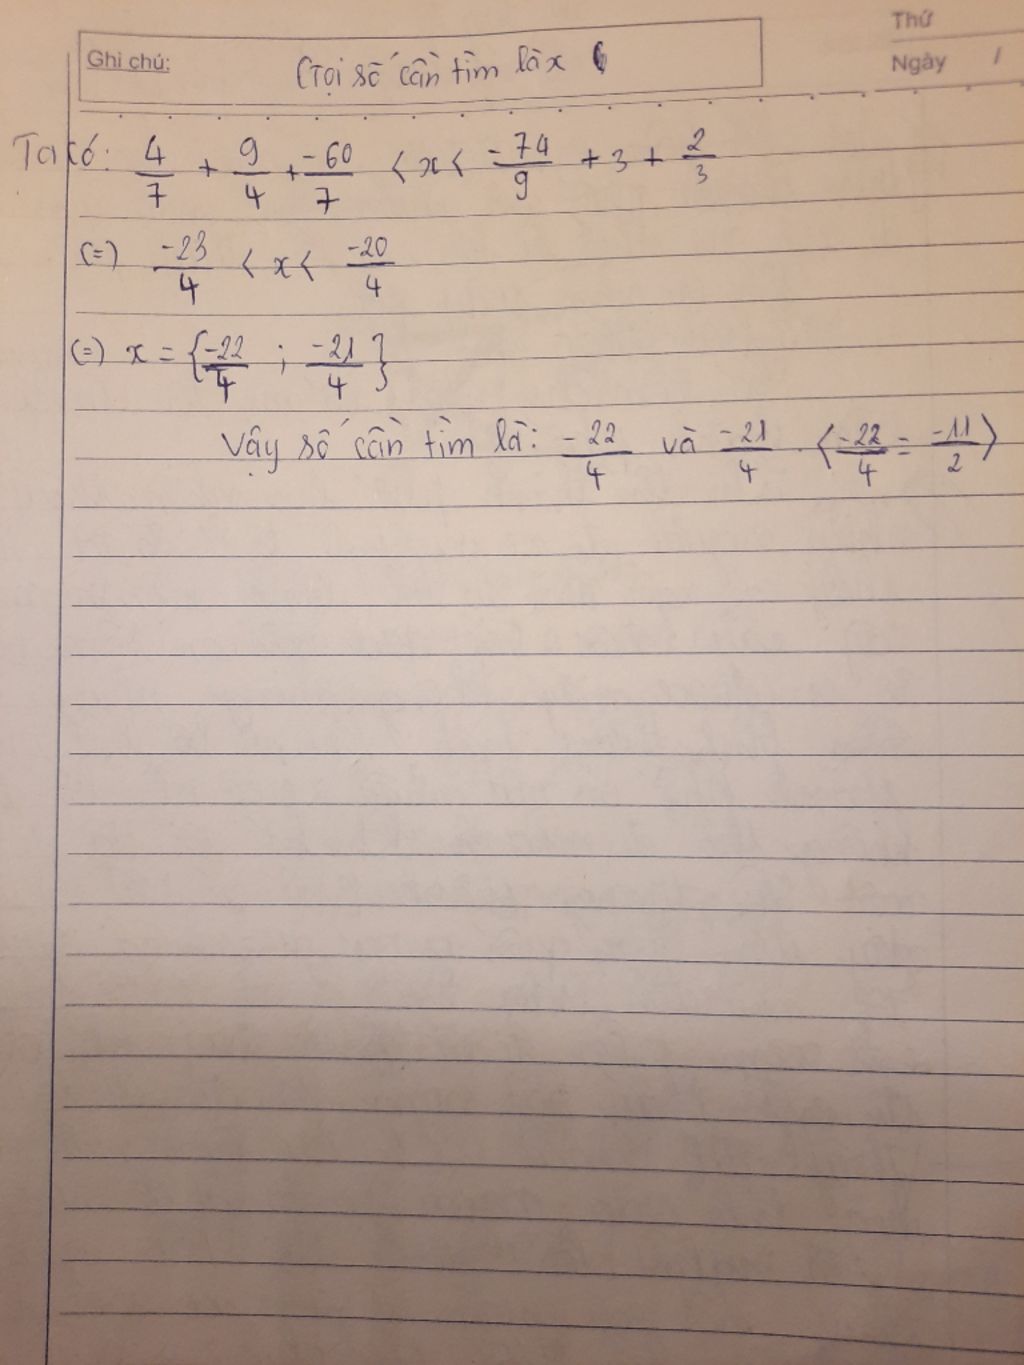 Thứ
Ghi chú: Gọi số cần tìm là x
Ngày /
Ta có: 4/7 + 9/4 + -60/7 < x < -74/9 + 3 + 2/3
(=) -23/4 < x < -20/4
(=) x = {-22/4 ; -21/4}
Vậy số cần tìm là: -22/4 và -21/4 . <-22/4 = -11/2>